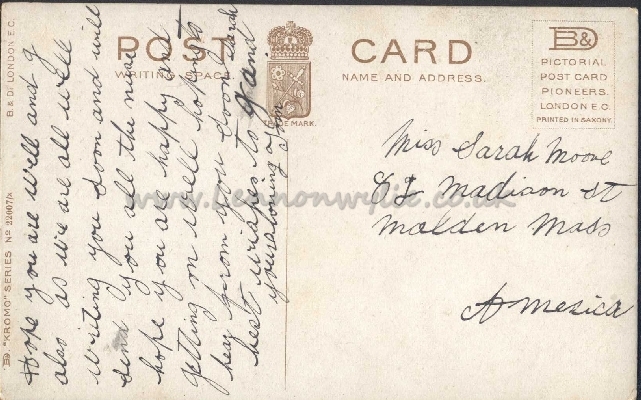 POST CARD
WRITING SPACE.
NAME AND ADDRESS.
TRADE MARK.
B&D
PICTORIAL
POST CARD
PIONEERS.
LONDON E.C.
PRINTED IN SAXONY.
B & D, LONDON E.C.
BD. "KROMO" SERIES No 22607/
Hope you are well and g
also as we are all well
writing you soon and will
send you all the news
hope you are happy and
getting on well hoping to
hear from you soon Sarah
best wishes to
your loving
Miss Sarah Moore
62 Madison st
Malden Mass
America
www.lennonwylie.co.uk